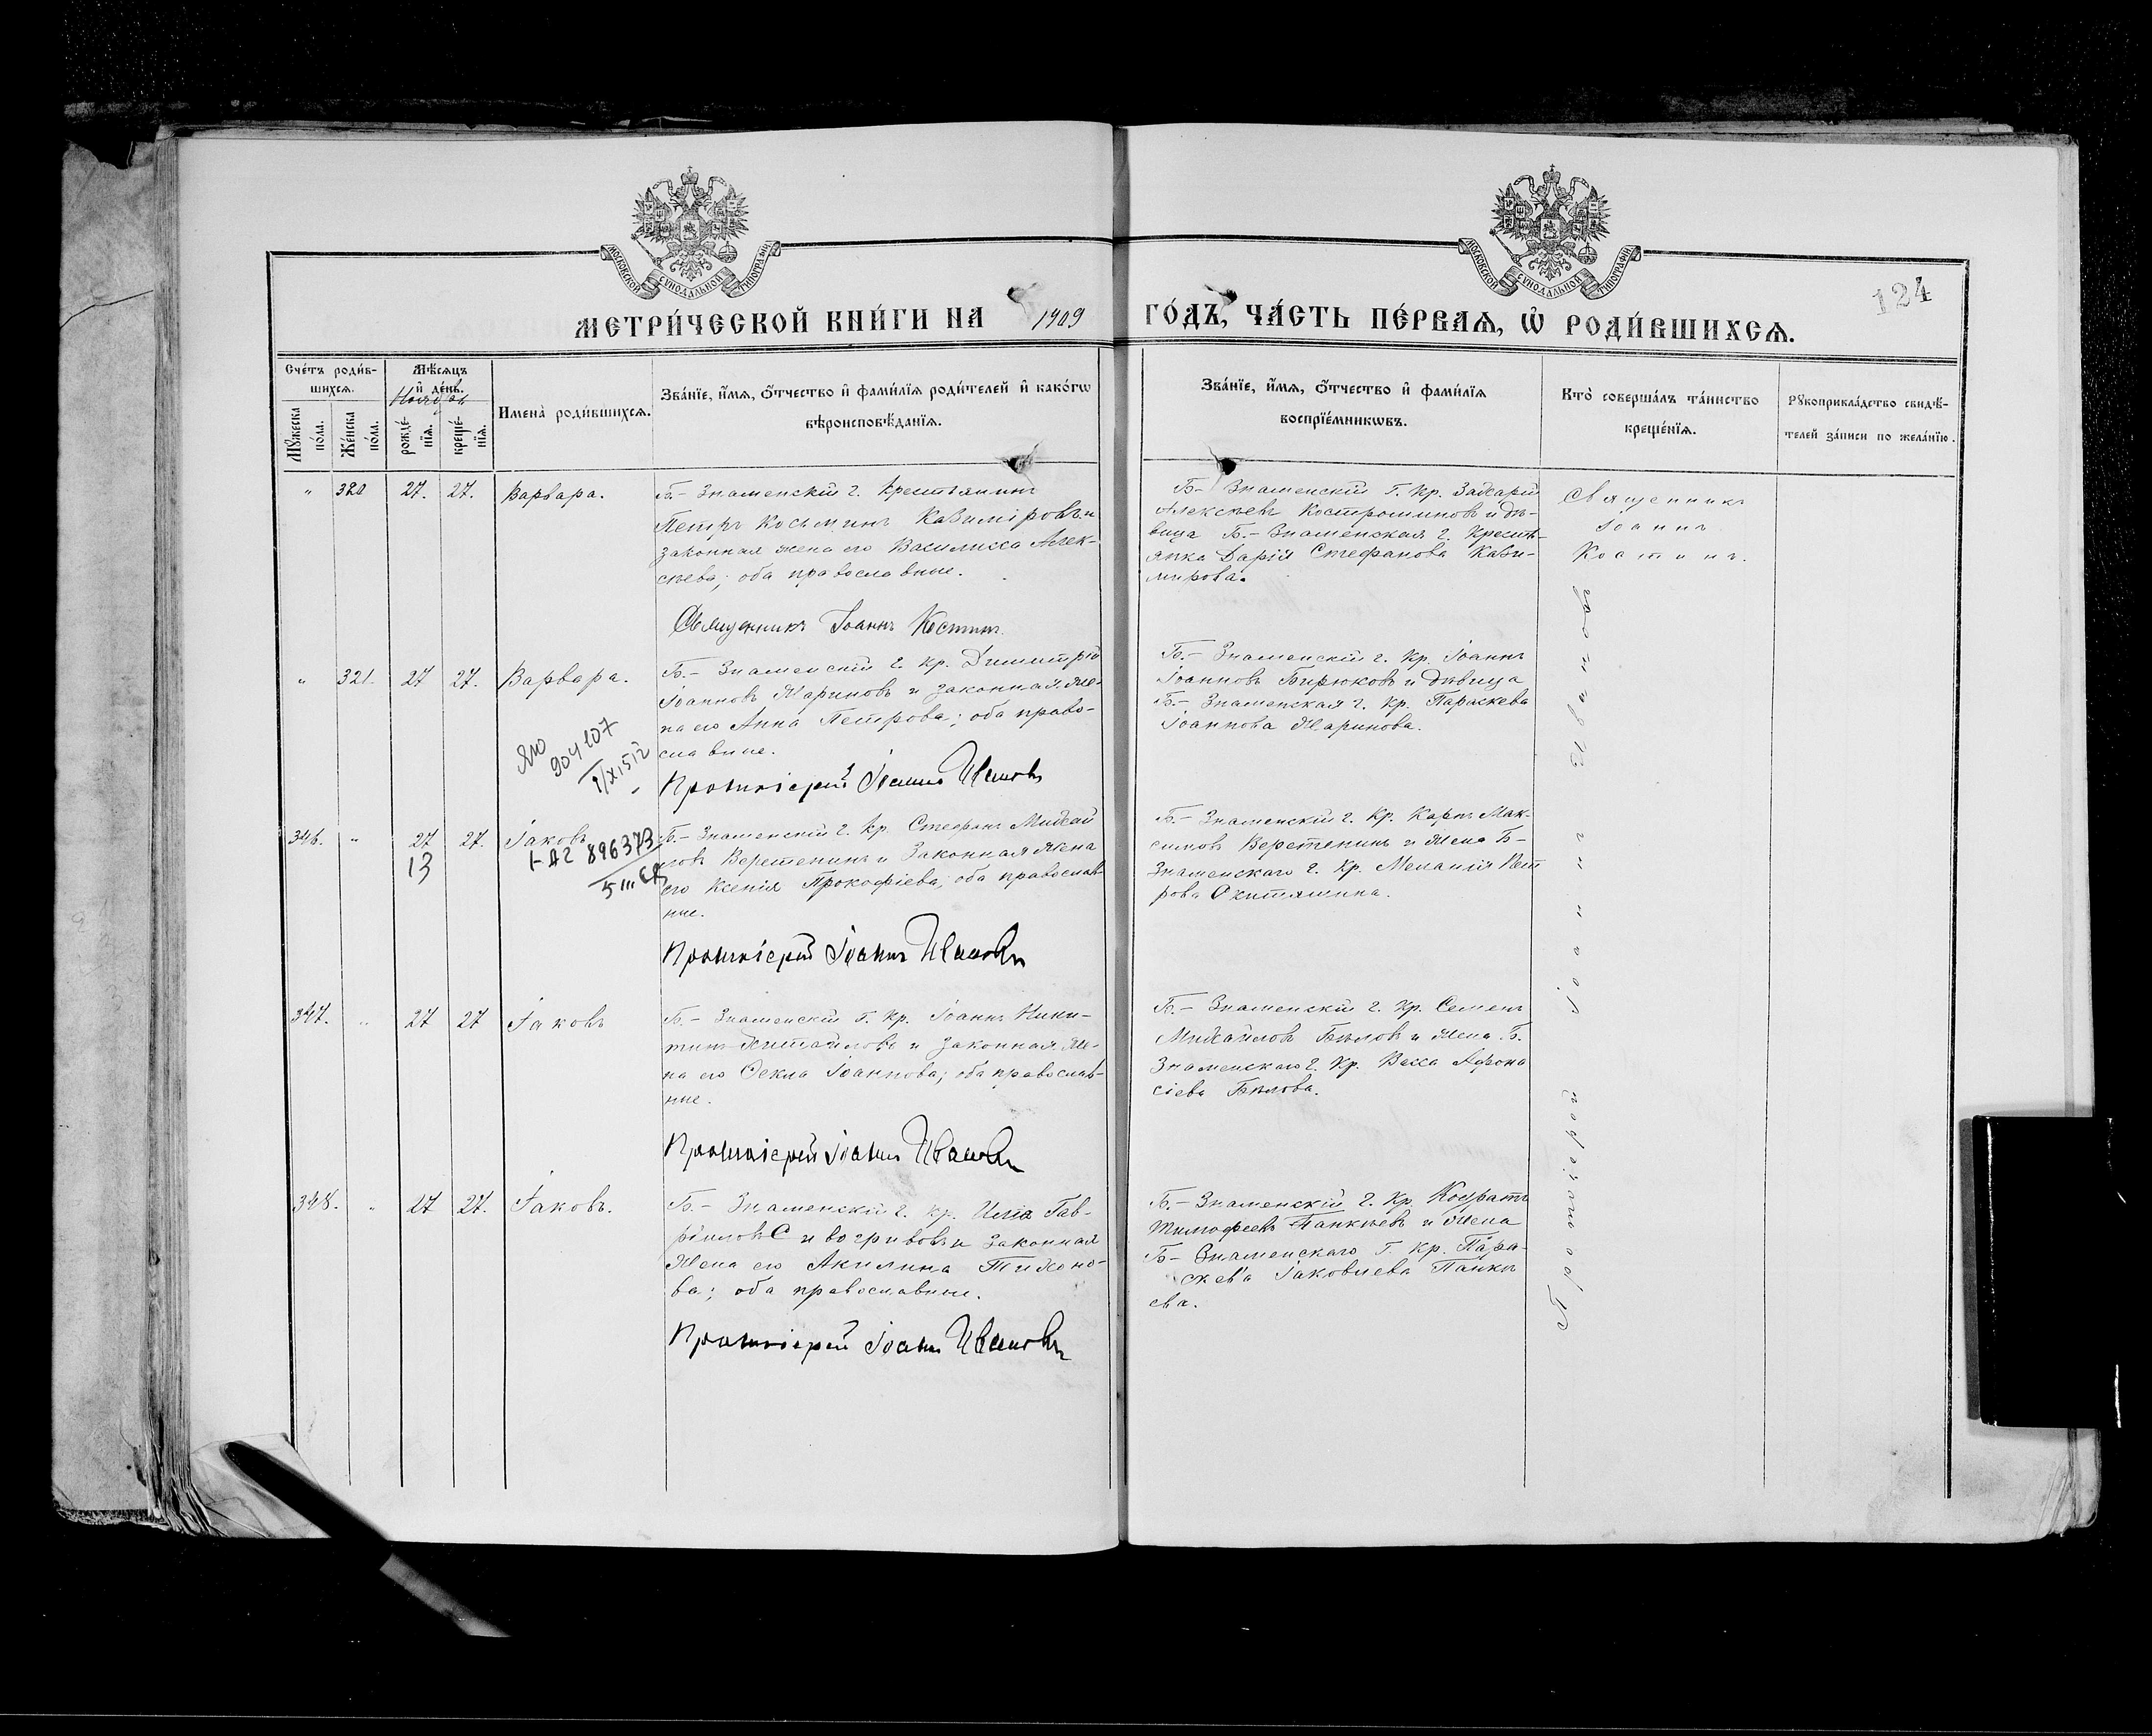 МОСКОВСКОЙ СѴНОДАЛЬНОЙ ТИПОГРАФІИ
МОСКОВСКОЙ СѴНОДАЛЬНОЙ ТИПОГРАФІИ
124
МЕТРИ́ЧЕСКОЙ КНИ́ГИ НА 1909 ГО́ДЪ, ЧА́СТЬ ПЕ́РВАѦ, Ѡ҆ РОДИ́ВШИХСѦ.
Сче́тъ роди́в-
шихсѧ.
Мꙋ́жеска по́ла.
Же́нска по́ла.
Мѣ́сѧцъ
и҆ де́нь.
Ноябрь
рожде́-
нїѧ.
креще́-
нїѧ.
И҆мена̀ роди́вшихсѧ.
Зва́нїе, и҆́мѧ, ѻ҆́тчество и҆ фами́лїѧ роди́телей и҆ како́гѡ
вѣроисповѣ́данїѧ.
Зва́нїе, и҆́мѧ, ѻ҆́тчество и҆ фами́лїѧ
воспрїе́мникѡвъ.
Кто̀ соверша́лъ та́инство
креще́нїѧ.
Рꙋкоприкла́дство свидѣ́-
телей за́писи по жела́нїю.
" 320 27. 27. Варвара.
Б.- Знаменскій г. крестьянинъ
Петръ Косьминъ Казиміровъ и
законная жена его Василисса Алек-
сѣева; оба православные.
Священникъ Іоаннъ Костинъ
Б- Знаменскій г. кр. Захарій
Алексѣевъ Костроминовъ и дѣ-
вица Б.- Знаменская г. кресть-
янка Дарія Стефанова Кази-
мирова.
Священникъ
Іоаннъ
Костинъ.
" 321. 27 27. Варвара.
904107
Б.- Знаменскій г. кр. Димитрій
Іоанновъ Жариновъ и законная же-
на его Анна Петрова; оба право-
славные.
Протоіерей Іоаннъ Ивановъ
Б.- Знаменскій г. кр. Іоаннъ
Іоанновъ Бирюковъ и дѣвица
Б.- Знаменская г. кр. Параскева
Іоаннова Жаринова.
Протоіерей Іоаннъ Ивановъ
346. " 27 27. Іаковъ
13
896373
Б.- Знаменскій г. кр. Стефанъ Михай
ловъ Веретенинъ и законная жена
его Ксенія Прокофіева; оба православ-
ные.
Протоіерей Іоаннъ Ивановъ
Б.- Знаменскій г. кр. Карпъ Мак-
симовъ Веретенинъ и жена Б-
Знаменскаго г. кр. Меланія Пет
рова
347. " 27 27 Іаковъ
Б.- Знаменскій г. кр. Іоаннъ Ники-
тинъ и законная же-
на его Ѳекла Іоаннова; оба православ-
ные.
Протоіерей Іоаннъ Ивановъ
Б.- Знаменскій г. кр. Семенъ
Михайловъ Бѣловъ и жена Б.
Знаменскаго г. кр. Васса Афона
сіева Бѣлова.
348. " 27 27. Іаковъ.
Б.- Знаменскій г. кр. Илія Гав-
ріиловъ Сивогривовъ и законная
жена его Акилина Тихоно-
ва; оба православные.
Протоіерей Іоаннъ Ивановъ
Б.- Знаменскій г. кр. Кодратъ
Тимофеевъ Панкѣевъ и жена
Б- Знаменскаго г. кр. Пара-
скева Іаковлева Панкѣ
ева.